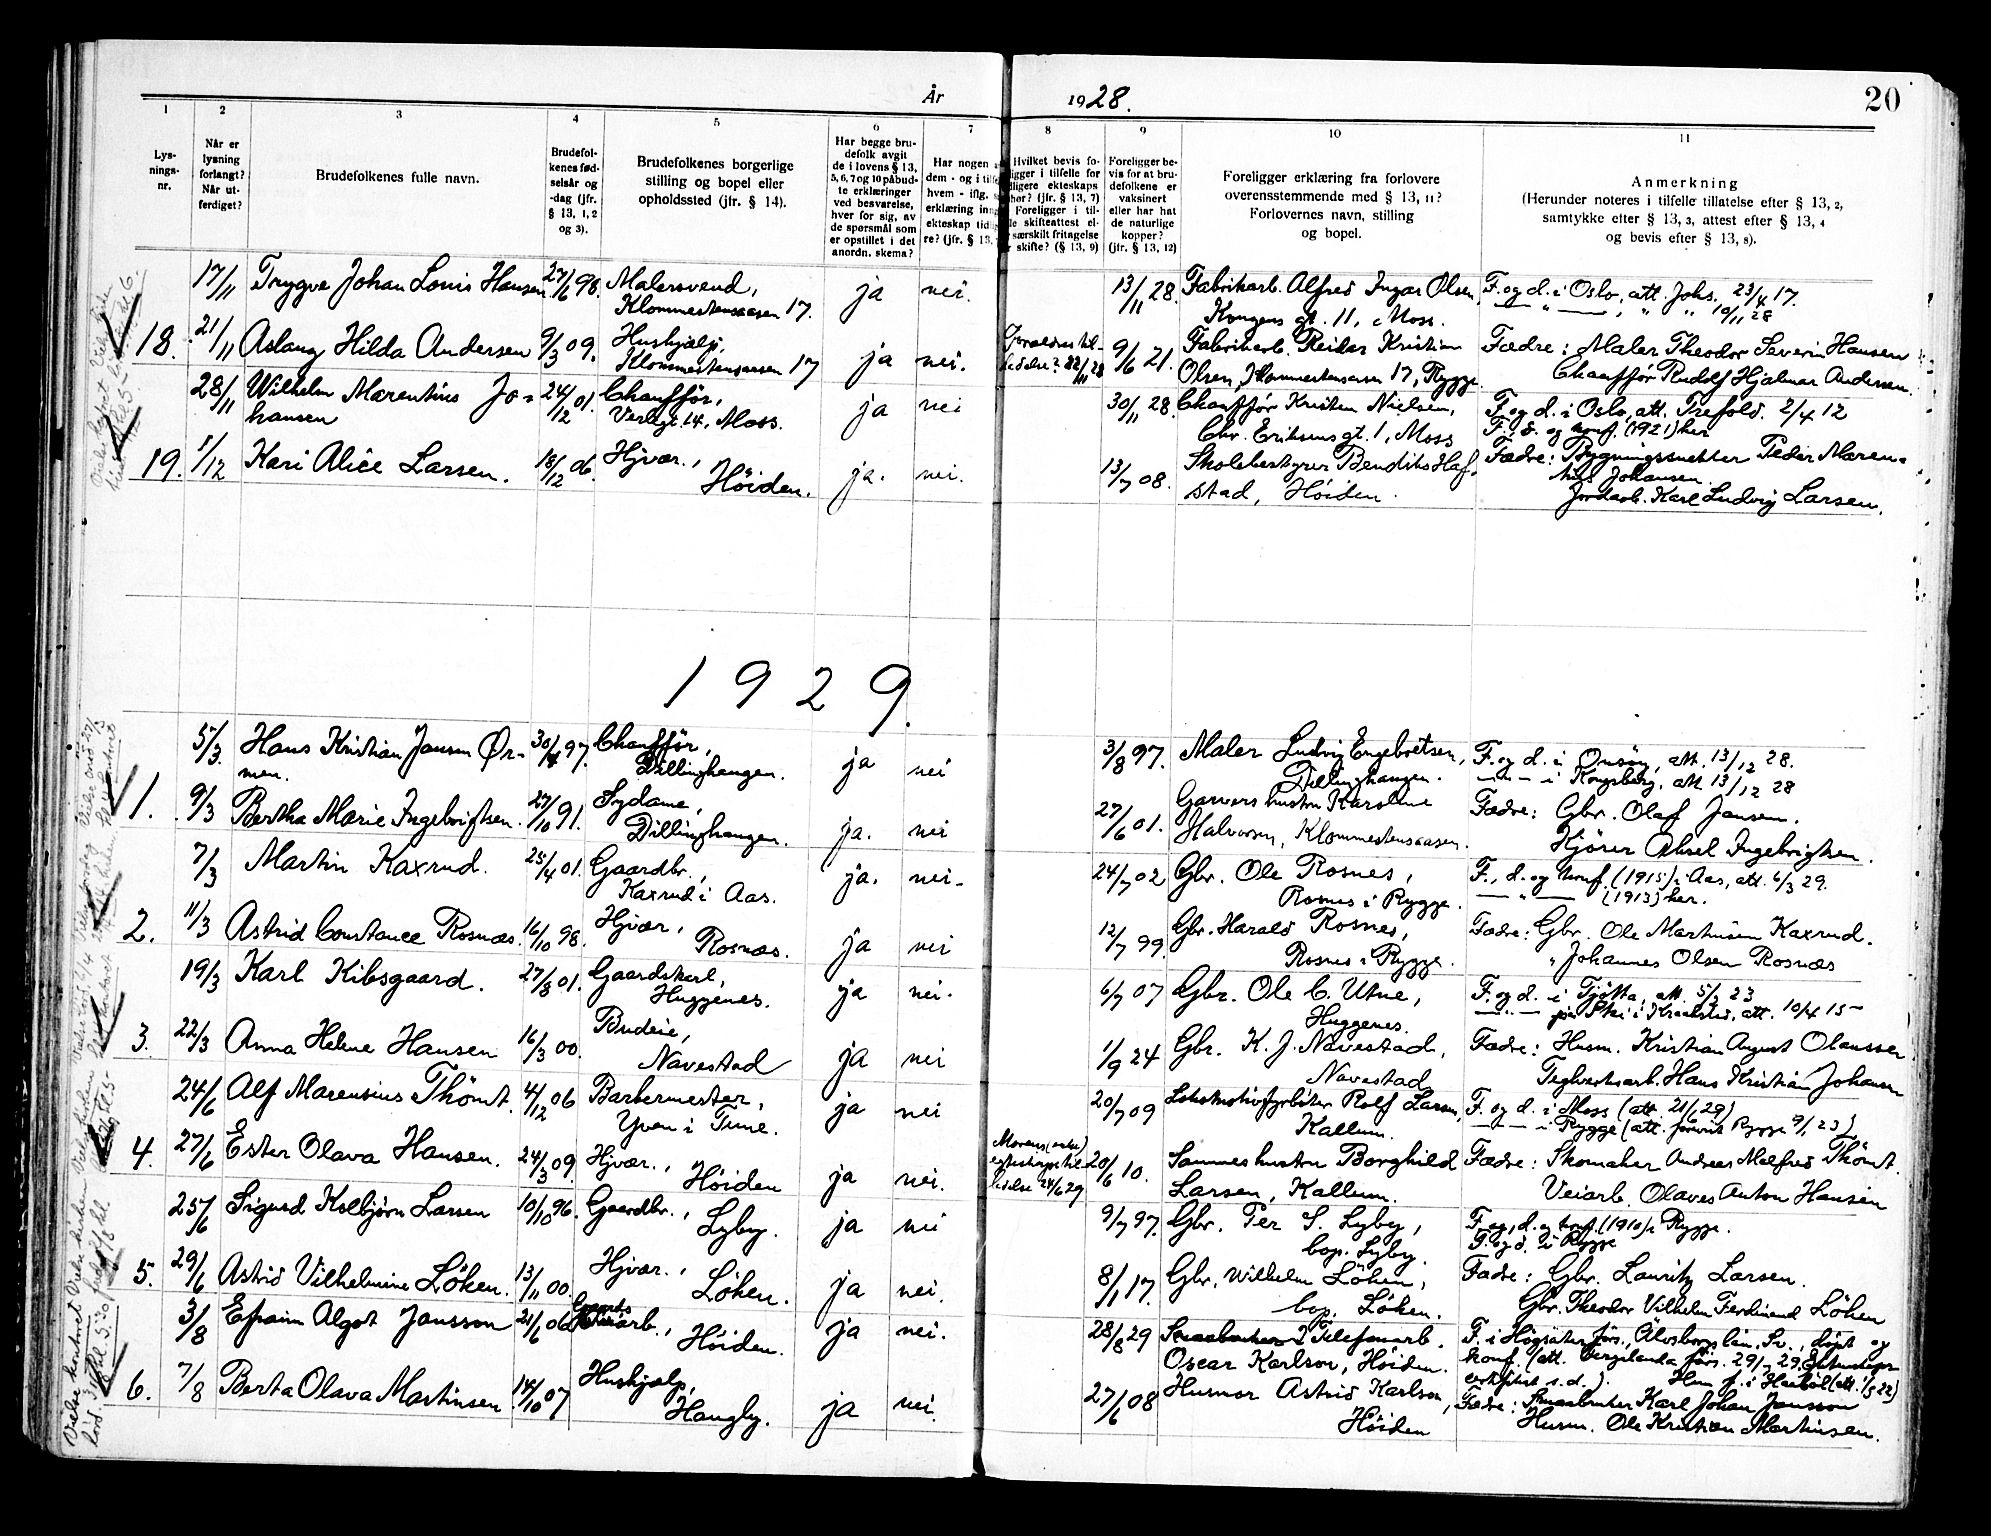 År 1928.
20
1 2 3 4 5 6 7 8 9 10 11
Lys-
nings-
nr.
Når er
lysning
forlangt?
Når ut-
ferdiget?
Brudefolkenes fulle navn.
Brudefol-
kenes fød-
selsår og
-dag (jfr.
§ 13, 1, 2
og 3).
Brudefolkenes borgerlige
stilling og bopel eller
opholdssted (jfr. § 14).
Har begge bru-
defolk avgit
de i lovens § 13,
5, 6, 7 og 10 påbud-
te erklæringer
ved besvarelse,
hver for sig, av
de spørsmål som
er opstillet i det
anordn. skema?
Har nogen
dem - og i
hvem - iflg.
erklæring inng
ekteskap
re? (jfr. § 13,
Hvilket bevis fo-
ligger i tilfelle for
dligere ekteskaps
hør? (jfr. § 13, 7)
Foreligger i til-
le skifteattest el-
særskilt fritagelse
skifte? (§ 13, 9)
Foreligger be-
vis for at bru-
defolkene er
vaksinert
eller har hat
de naturlige
kopper?
(jfr. § 13, 12)
Foreligger erklæring fra forlovere
overensstemmende med § 13, 11?
Forlovernes navn, stilling
og bopel.
Anmerkning
(Herunder noteres i tilfelle tillatelse efter § 13, 2,
samtykke efter § 13, 3, attest efter § 13, 4
og bevis efter § 13, 8).
17/11 Trygve Johan Louis Hansen 27/6 98. Malersvend,
Klommestensaasen 17. ja nei. 13/11 28. Fabrikarb. Alfred Ingar Olsen,
Kongens gt. 11, Moss. F. og d. i Oslo, att. Johs. 23/4 17.
— " — , " " 10/11 28
18. 21/11 Aslaug Hilda Andersen 9/3 09. Hushjelp,
Klommestensaasen 17 ja nei. Forældres til-
ladelse 22/11 28 9/6 21. Fabrikarb. Reidar Kristian
Olsen, Klommestensaasen 17, Rygge. Fædre: Maler Theodor Severin Hansen
Chauffør Rudolf Hjalmar Andersen.
28/11 Wilhelm Marentius Jo-
hansen 24/12 01. Chauffør,
Verlegt. 14, Moss. ja nei 30/11 28. Chauffør Kristen Nielsen,
Chr. Eriksens gt. 1, Moss F. og d. i Oslo, att. Trefold. 2/4 12
F., d. og konf. (1921) her
19. 1/12 Kari Alice Larsen. 18/12 06. Hjvær.,
Höiden. ja. nei. 13/7 08. Skolebestyrer Bendiks Haf-
stad, Höiden. Fædre: Bygningssnekker Peder Maren-
tius Johansen.
Jordarb. Karl Ludvig Larsen.
1929.
5/3 Hans Kristian Jansen Ør-
men. 30/4 97. Chauffør,
Dillinghaugen. ja nei 3/8 97. Maler Ludvig Engebretsen,
Dillinghaugen. F. og d. i Onsöy, att. 13/12 28.
— " — i Kongsberg, att. 13/12 28
1. 9/3 Bertha Marie Ingebrigtsen. 27/10 91. Sydame,
Dillinghaugen. ja. nei 27/6 01. Garvers hustru Karoline
Halvorsen, Klommestensaasen. Fædre: Gbr. Olaf Jansen.
Kjörer Aksel Ingebrigtsen.
7/3 Martin Kaxrud. 25/4 01. Gaardbr.,
Kaxrud i Aas. ja. nei. 24/7 02 Gbr. Ole Rosnes,
Rosnes i Rygge. F., d. og konf. (1915) i Aas, att. 6/3 29.
— " — (1913) her.
2. 11/3 Astrid Constance Rosnæs. 16/10 98. Hjvær.,
Rosnæs. ja nei 12/7 99. Gbr. Harald Rosnes,
Rosnes i Rygge. Fædre: Gbr. Ole Martinsen Kaxrud.
" Johannes Olsen Rosnæs
19/3 Karl Kibsgaard. 27/8 01. Gaardskarl,
Huggenes. ja nei. 6/7 07 Gbr. Ole C. Utne,
Huggenes. F. og d. i Tjøtta, att. 5/2 23
— " — på Ski i Kraakstad, att. 10/4 15
3. 22/3 Anna Helene Hansen 16/3 00. Budeie,
Navestad ja nei 1/9 24 Gbr. K. J. Navestad,
Navestad Fædre: Husm. Kristian August Olaussen
Teglverksarb. Hans Kristian Johansen
24/6 Alf Marensius Thömt. 4/12 06 Barbermester,
Yven i Tune. ja nei 20/7 09 Lokomotivfyrbøter Rolf Larsen,
Kallum. F. og d. i Moss (att. 21/6 29)
— " — i Rygge (att. Rygge 9/1 23)
4. 27/6 Ester Olava Hansen. 24/3 09. Hjvær.,
Höiden ja nei. Morens (enke)
egteskapstil-
ladelse 24/6 29 20/6 10. Sammes hustru Borghild
Larsen, Kallum. Fædre: Skomaker Andreas Alfred Thömt.
Veiarb. Olaves Anton Hansen
25/6 Sigurd Kolbjörn Larsen 10/10 96. Gaardbr.,
Lyby. ja nei 9/7 97. Gbr. Per S. Lyby,
bop. Lyby. F. og d. og konf. (1910) i Rygge.
F. og d. i Rygge
5. 29/6 Astrid Vilhelmine Löken. 13/11 00. Hjvær.,
Löken. ja nei. 8/1 17. Gbr. Wilhelm Löken,
bop. Löken. Fædre: Gbr. Lauritz Larsen.
Gbr. Theodor Vilhelm Ferdinand Löken
3/8 Efraim Algot Jansson 21/6 06 Gaards
arb., Höiden. ja nei. 28/8 29 Telefonarb.
Oscar Karlson, Höiden. F. i Högsäter förs., Älvsborgs län, Sv., döpt og
konf. (att. förs. 29/7 29. Ektenskaps-
certifikat s.d.). Hun f. i (att. 1/5 22)
6. 7/8 Berta Olava Martinsen 14/10 07 Hushjelp,
Haugby. ja nei. 27/6 08 Husmor Astrid Karlson,
Höiden Fædre: Smaabruker Karl Johan Jansson
Husm. Ole Kristian Martinsen.